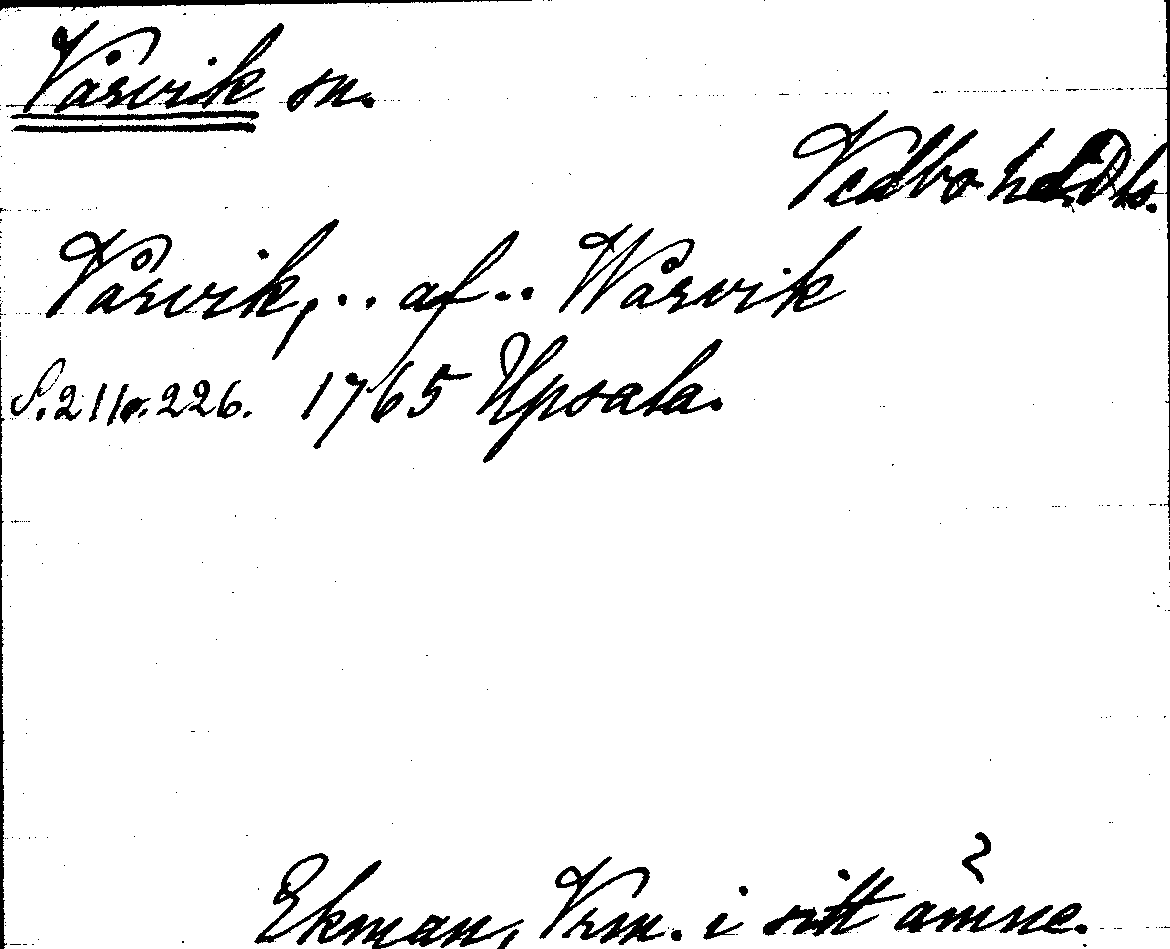 Vårvik sn.
Vedbo hd Dls.
Vårvik, .. af .. Wårvik
S. 211 o. 226. 1765 Upsala.
Ekman, Vrm. i sitt ämne.